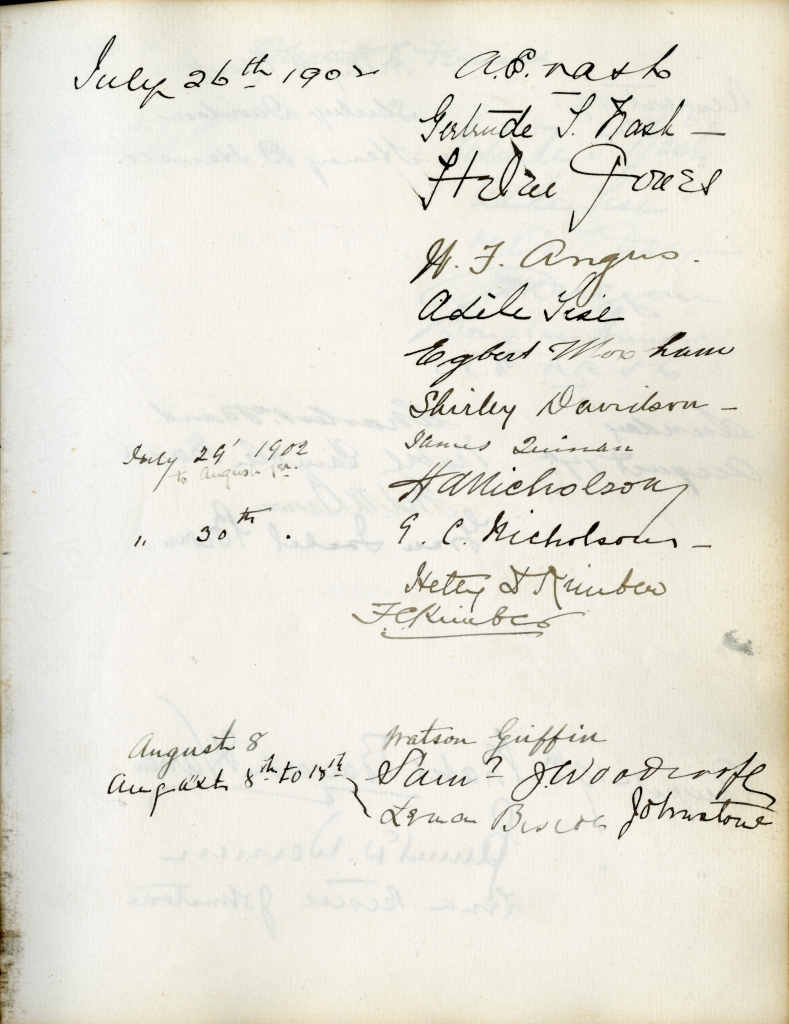 July 26th 1902 A.E. Nash
Gertrude S. Nash —
Jones
W. F. Angus.
Adèle Sise
Egbert Moxham
Shirley Davidson —
James Quinan
July 29' 1902
to August 1st.
HA Nicholson
" 30th . G. C. Nicholson —
Hetty D Kimber
F C Kimber
August 8 Watson Griffin
August 8th to 18th Saml J. Woodroofe
Lena Johnstone